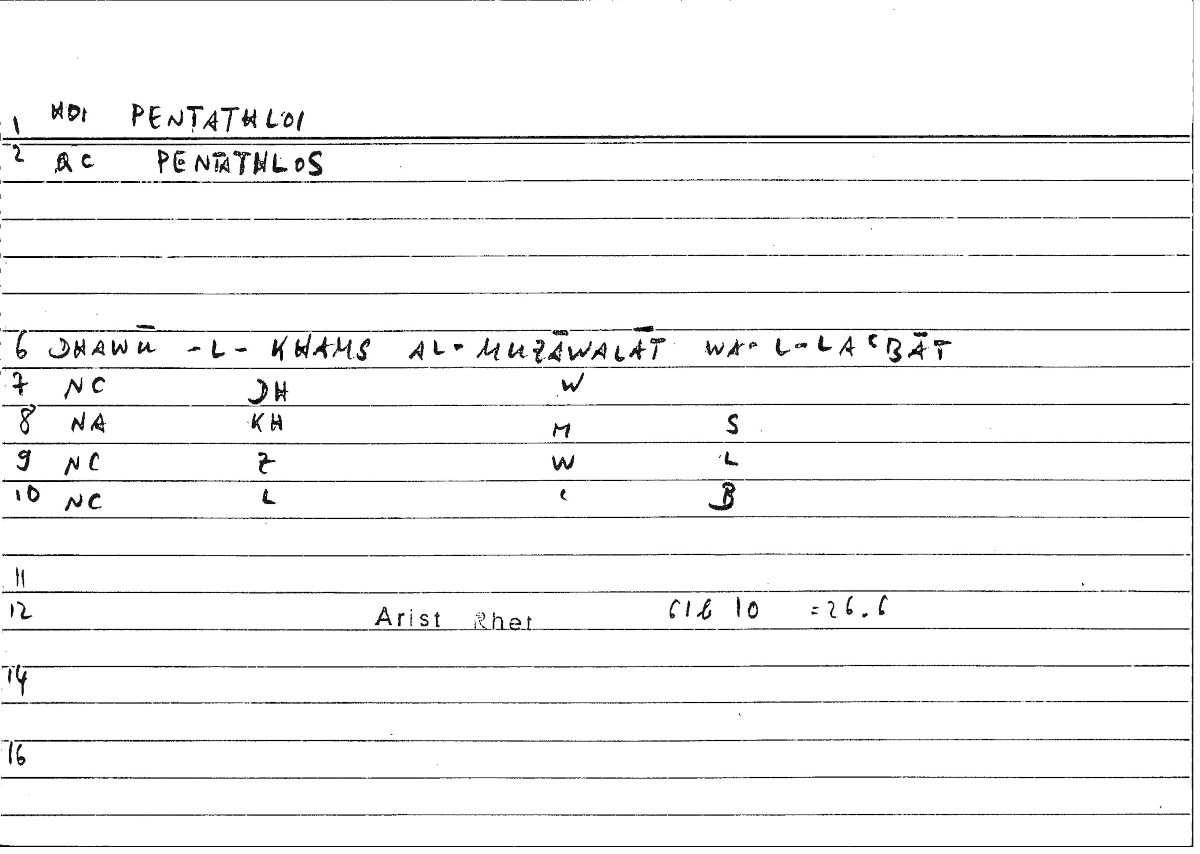 1 HOI PENTATHLOI
2 QC PENTATHLOS
6 DHAWŪ -L- KHAMS AL- MUZĀWALĀT WA- L- LAʿBĀT
7 NC DH W
8 NA KH M S
9 NC Z W L
10 NC L ʿ B
11
12 Arist Rhet 61b 10 =26.6
14
16